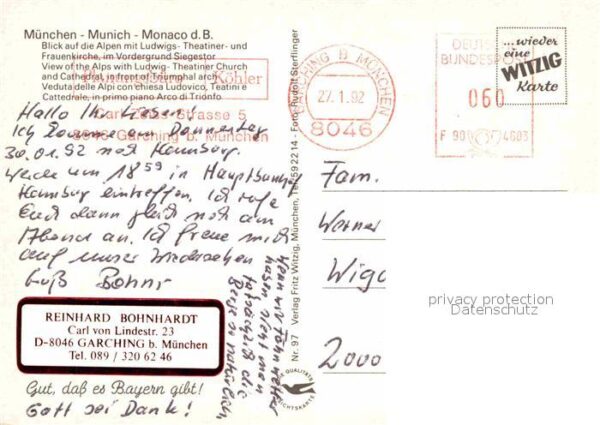 München - Munich - Monaco d. B.
Blick auf die Alpen mit Ludwigs- Theatiner- und
Frauenkirche, im Vordergrund Siegestor
View of the Alps with Ludwig- Theatiner Church
and Cathedral, in front of Triumphal arch
Veduta delle Alpi con chiesa Ludovico, Teatini e
Cathedrale, in primo piano Arco di Trionfo
Köhler
Straße 5
8046 Garching b. München
Hallo Ihr
Ich komme am Donnerstag
30.01.92 nach Hamburg.
Werde um 18 59 in Hauptbahnhof
Hamburg eintreffen. Ich rufe
Euch dann gleich noch am
Abend an. Ich freue mich
auf unser Wiedersehen
Gruß
Wenn wir Föhnwetter
haben, sieht man
tatsächlich die
Berge so
REINHARD BOHNHARDT
Carl von Lindestr. 23
D-8046 GARCHING b. München
Tel. 089 / 320 62 46
Gut, daß es Bayern gibt!
Gott sei Dank!
Nr. 97 Verlag Fritz Witzig, München, Tel. 592214 - Foto: Rudolf Sterflinger
DIE QUALITÄTS
ANSICHTSKARTE
GARCHING B MÜNCHEN
27.1.92
8046
DEUTSCHE
BUNDESPOST
060
F 90 4603
...wieder
eine
WITZIG
Karte
Fam.
Werner
Wiga
2000
privacy protection
Datenschutz